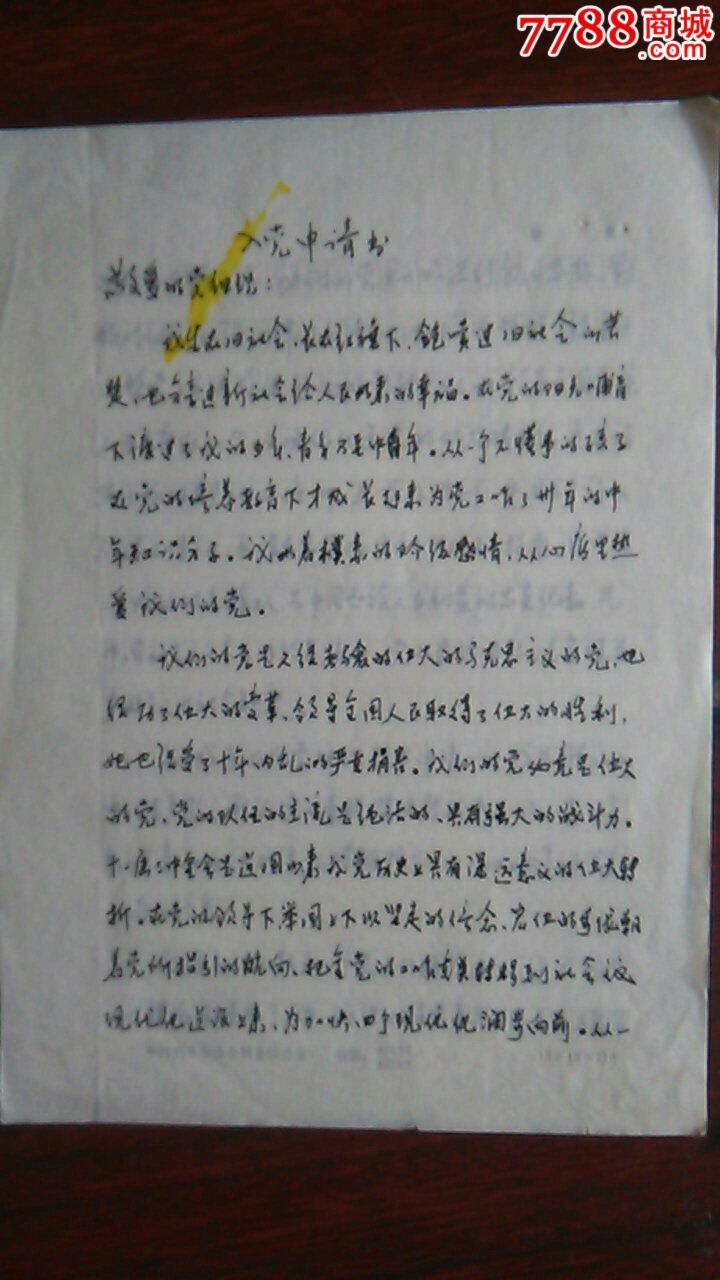 7788商城
.com
入党申请书
敬爱的党组织：
我生在旧社会、长在红旗下、饱尝过旧社会的苦
楚，也享过新社会给人民的幸福。在党的阳光哺育
下渡过了我的少年、青年又是中年。从一个不懂事的孩子
在党的培养教育下才成长起来为党工作了卅年的中
年知识分子。我怀着朴素的阶级感情，从心底里热
爱我们的党。
我们的党是久经考验的伟大的马克思主义的党，她
经历了伟大的变革、领导全国人民取得了伟大的胜利，
她也经受了十年内乱的严重损害。我们的党仍竟是伟大
的党、党的队伍的主流是纯洁的、具有强大的战斗力。
十一届三中全会是建国以来我党历史上具有深远意义的伟大转
折。在党的领导下举国上下以坚定的信念、宏伟的步伐朝
着党所指引的航向、把全党的工作转移到社会
现代化建设上来，为加快四个现代化阔步向前。从一